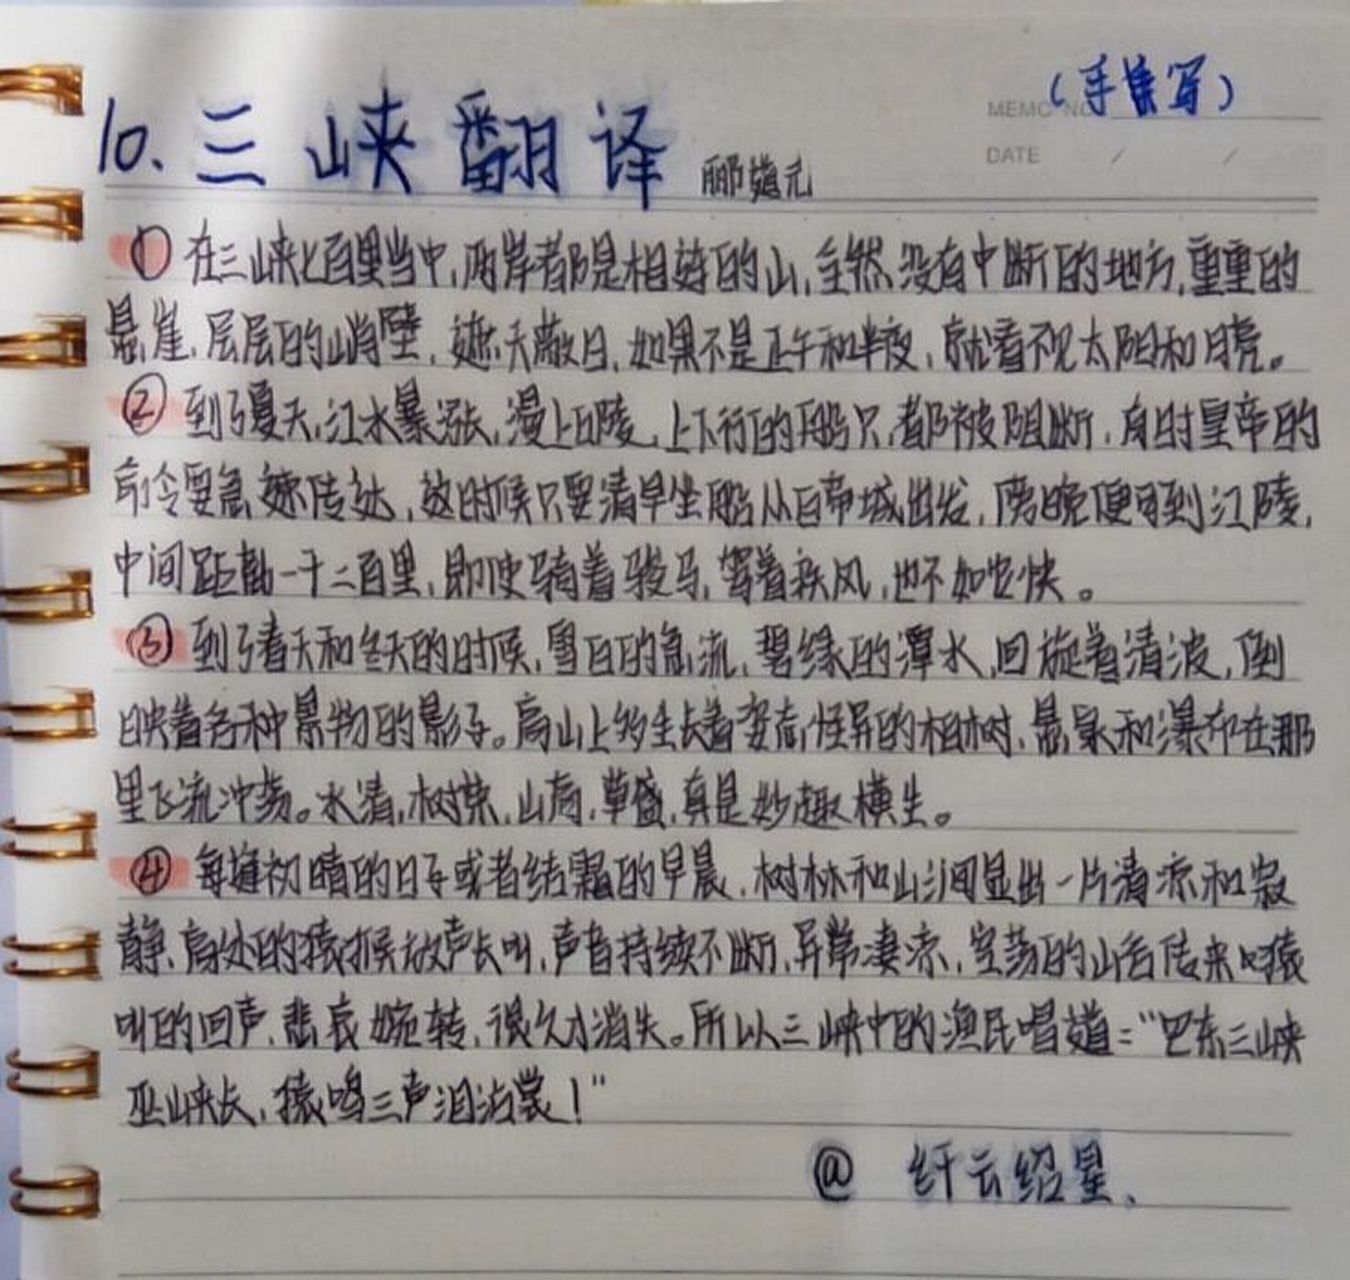 (手集写)
MEMO NO.
10. 三峡翻译 郦道元
DATE / /
① 在三峡七百里当中,两岸都是相连的山,全然没有中断的地方,重重的
悬崖,层层的山峭壁,遮天蔽日,如果不是正午和半夜,就看不见太阳和月亮。
② 到了夏天,江水暴涨,漫上丘陵,上下行的船只,都被阻断,有时皇帝的
命令要急速传达,这时候只要清早坐船从白帝城出发,傍晚便可到江陵,
中间距离一千二百里,即使骑着骏马,驾着疾风,也不如它快。
③ 到了春天和冬天的时候,雪白的急流,碧绿的潭水,回旋着清波,倒
映着各种景物的影子。高山上多生长着姿态怪异的柏树,悬泉和瀑布在那
里飞流冲荡。水清,树荣,山高,草盛,真是妙趣横生。
④ 每逢初晴的日子或者结霜的早晨,树林和山涧显出一片清凉和寂
静,高处的猿猴放声长叫,声音持续不断,异常凄凉,空荡的山谷传来猿
叫的回声,悲哀婉转,很久才消失。所以三峡中的渔民唱道:“巴东三峡
巫峡长,猿鸣三声泪沾裳!”
@ 纤云绍星、